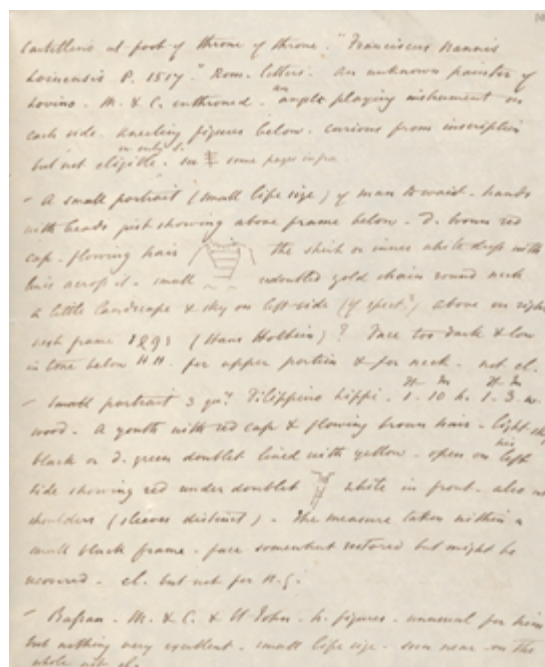 Cartellino at foot of throne of throne. "Franciscus Nannis
Loinensis P. 1517." Rom. letters. An unknown painter of
Lovino. M. & C. enthroned. an angel playing instrument on
each side. kneeling figures below. curious from inscription
but not eligible. in only s. see some pages infra
– A small portrait (small life size) of man to waist. hands
with beads just showing above frame below. D. brown red
cap. flowing hair the shirt or inner white dress with
lines across it. small redoubled gold chain round neck
a little landscape & sky on left side (of spect.r) above on right
(Hans Holbein)? Face too dark & low
in tone below H H. for upper portion & for neck. not el.
– Small portrait 3 qu.r Filippino Lippi. 1. 10 h. 1. 3. w.
wood. A youth with red cap & flowing brown hair. light sky
black or d. green doublet lined with yellow. open on his left
side showing red under doublet white in front. also at
shoulders (sleeves distinct). The measure taken within a
small black frame. face somewhat restored but might be
recovered. el. but not for N.G.
– Bassan. M. & C. & St John. h. figures. unusual for him
but nothing very excellent. small life size. seen near. on the
whole not el.